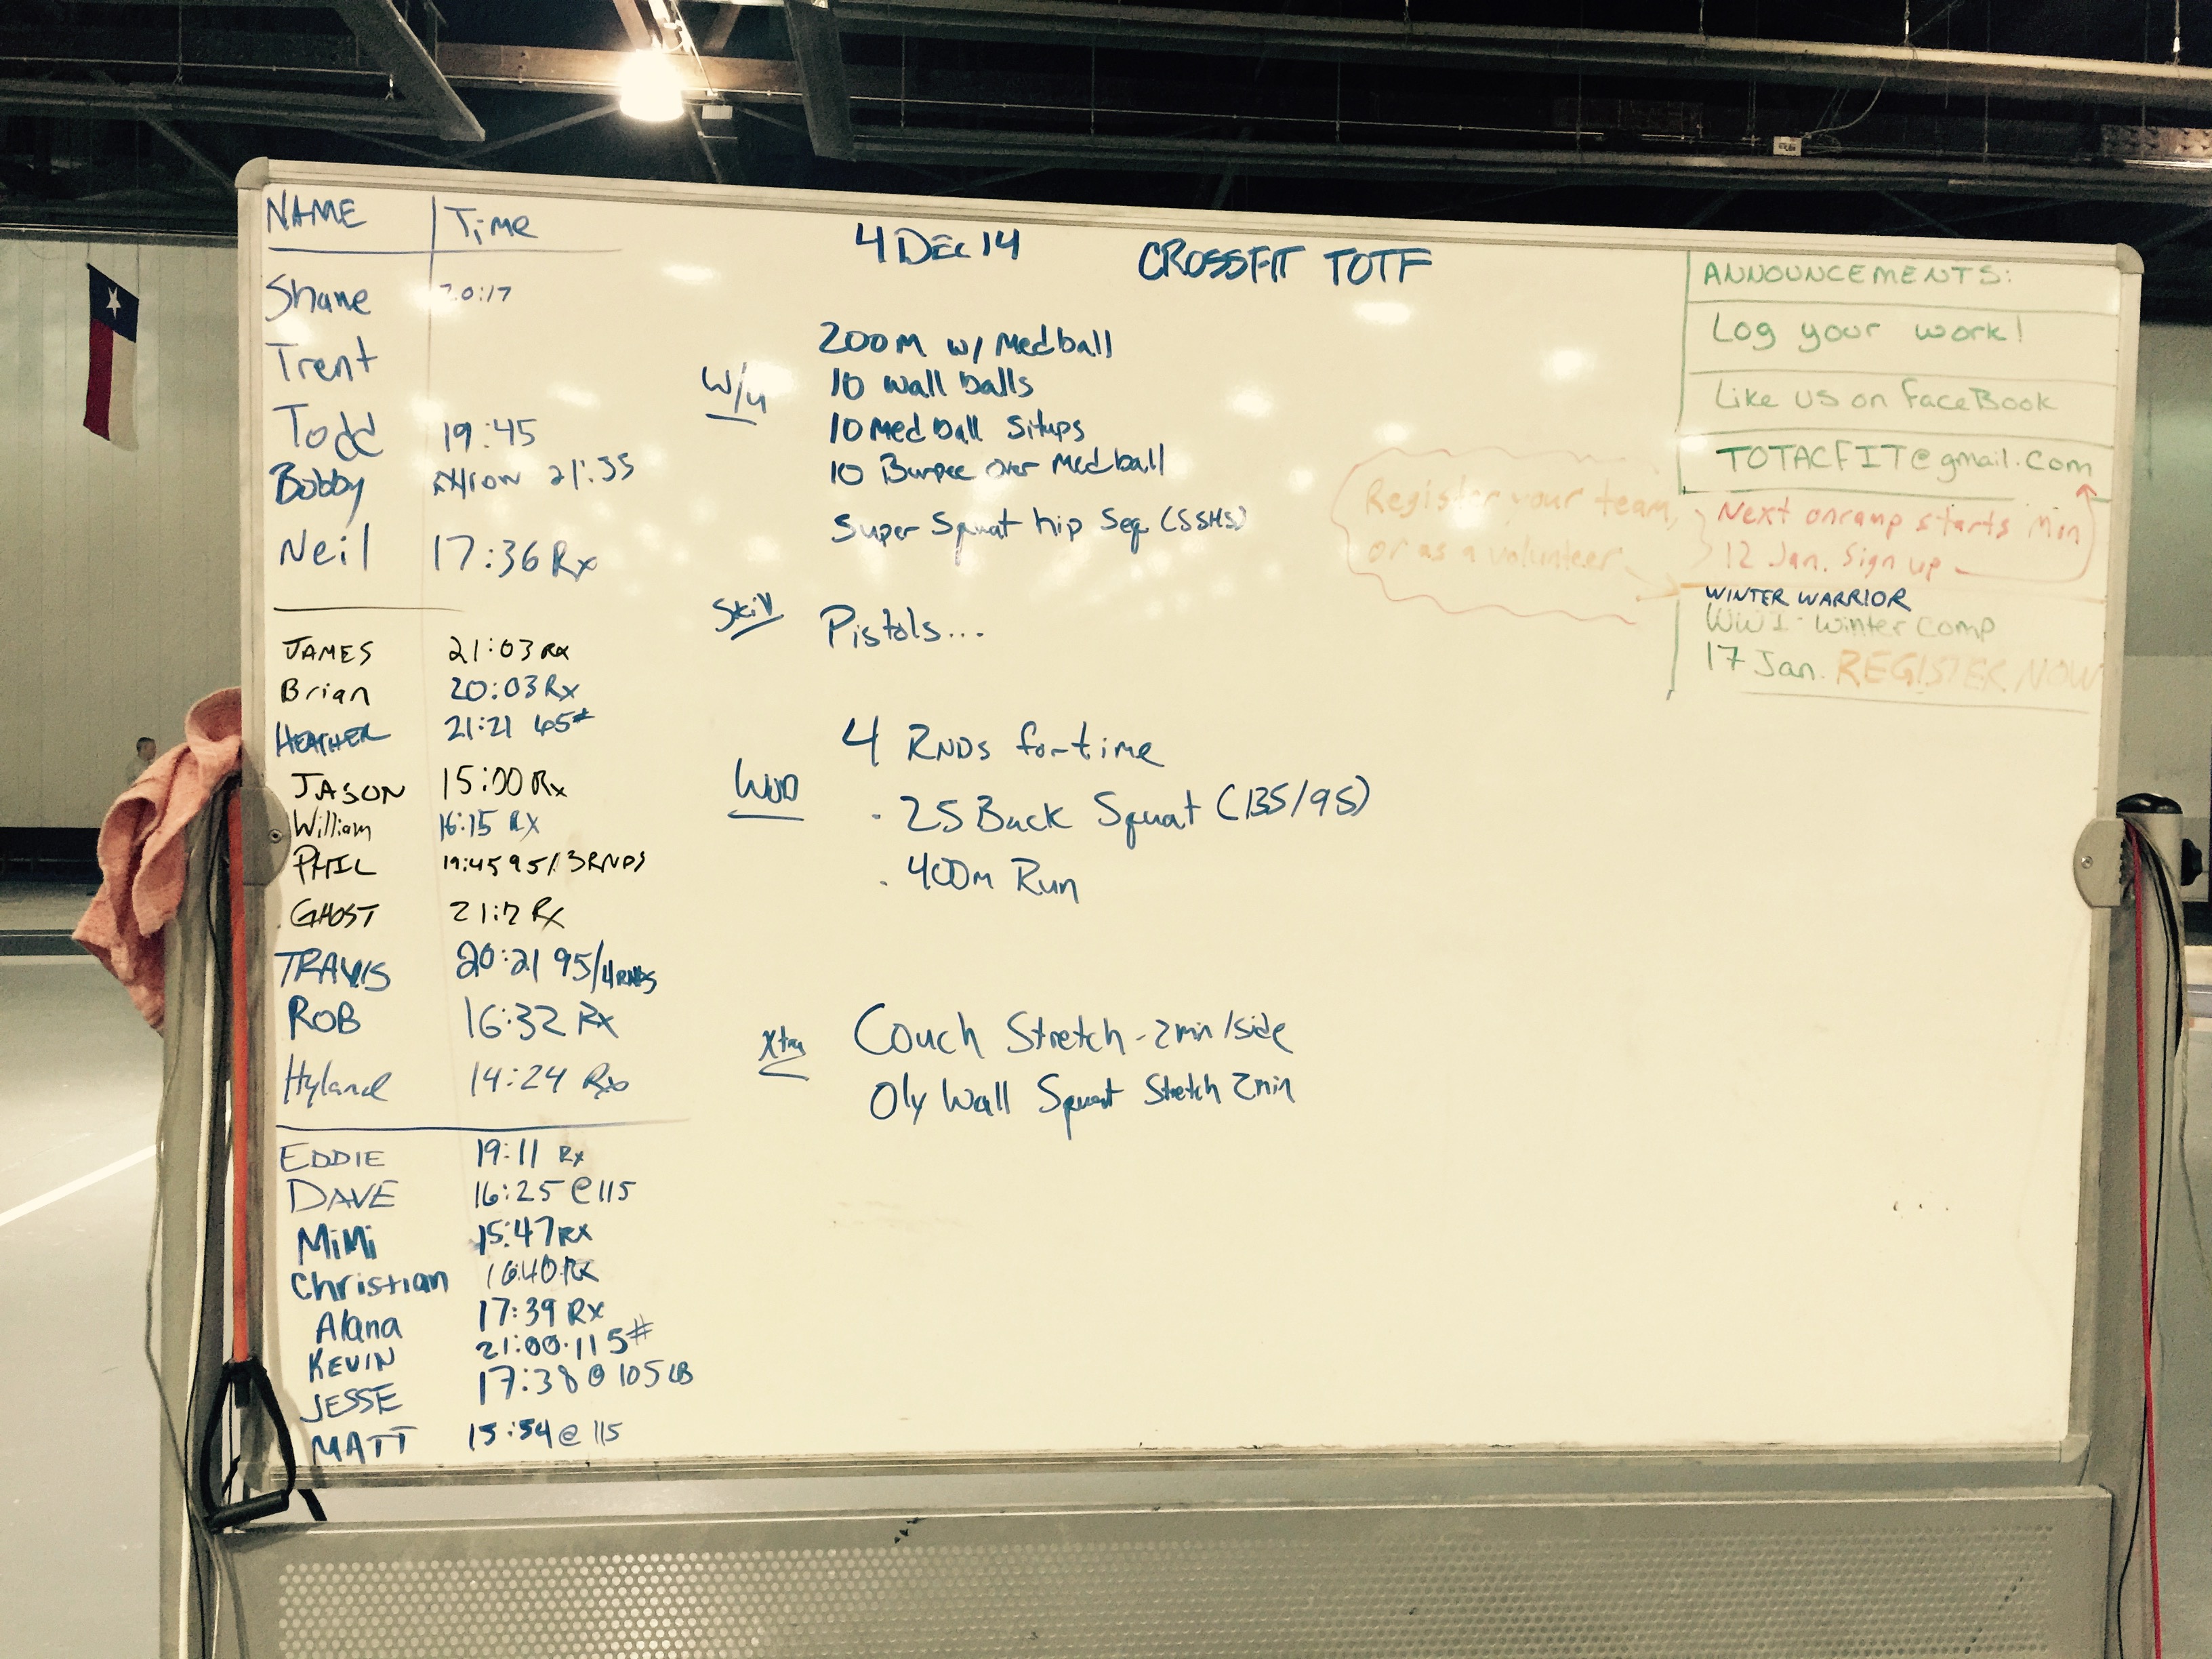 NAME | Time
Shane 20:17
Trent
Todd 19:45
Bobby 21:35
Neil 17:36 Rx
JAMES 21:03 Rx
Brian 20:03 Rx
HEATHER 21:21 65#
JASON 15:00 Rx
William 16:15 Rx
PHIL 19:45 95/3RNDS
GHOST Rx
TRAVIS 20:21 95/4RNDS
ROB 16:32 Rx
Hyland 14:24 Rx
EDDIE 19:11 Rx
DAVE 16:25 @ 115
MiMi 15:47 RX
Christian 16:40 RX
Alana 17:39 Rx
KEVIN 21:00 · 115#
JESSE 17:38 @ 105 LB
MATT 15:54 @ 115
4 DEC 14 CROSSFIT TOTF
W/u
200m w/ Medball
10 wall balls
10 Med ball Situps
10 Burpee over Medball
Super Squat hip Seq (SSHS)
Skill
Pistols...
WOD
4 RNDs for time
· 25 Back Squat (135/95)
· 400m Run
Xtra
Couch Stretch - 2 min/side
Oly Wall Squat Stretch 2min
ANNOUNCEMENTS:
Log your work!
Like us on FaceBook
TOTACFIT@gmail.com
Next onramp starts Mon
12 Jan. Sign up
Register your team,
or as a volunteer
WINTER WARRIOR
WW1 - Winter comp
17 Jan. REGISTER NOW